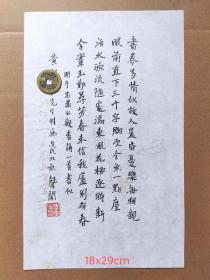 書卷多情似故人晨昏憂樂每相親
眼前直下三千字胸次全無一點塵
活水源流隨處滿東風花柳逐時新
金鞍玉勒尋芳客未信我廬別有春
明于忠肅公觀書詩一首書似
黄 先生
18x29cm